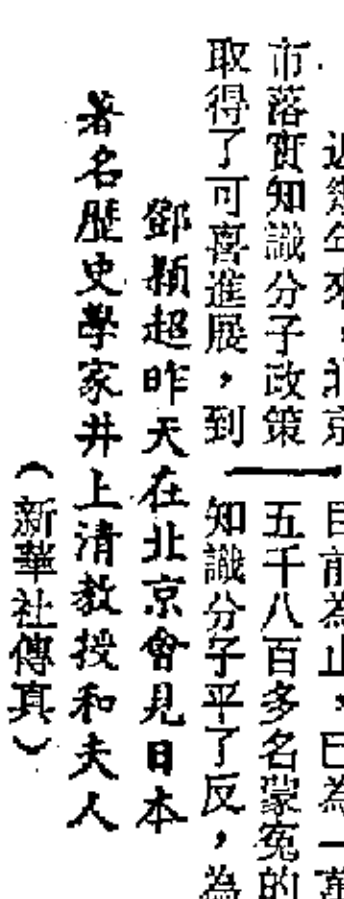 近幾年來，北京
市落實知識分子政策
取得了可喜進展，到
目前為止，已為一萬
五千八百多名蒙冤的
知識分子平了反，為
鄧穎超昨天在北京會見日本
著名歷史學家井上清教授和夫人
（新華社傳真）